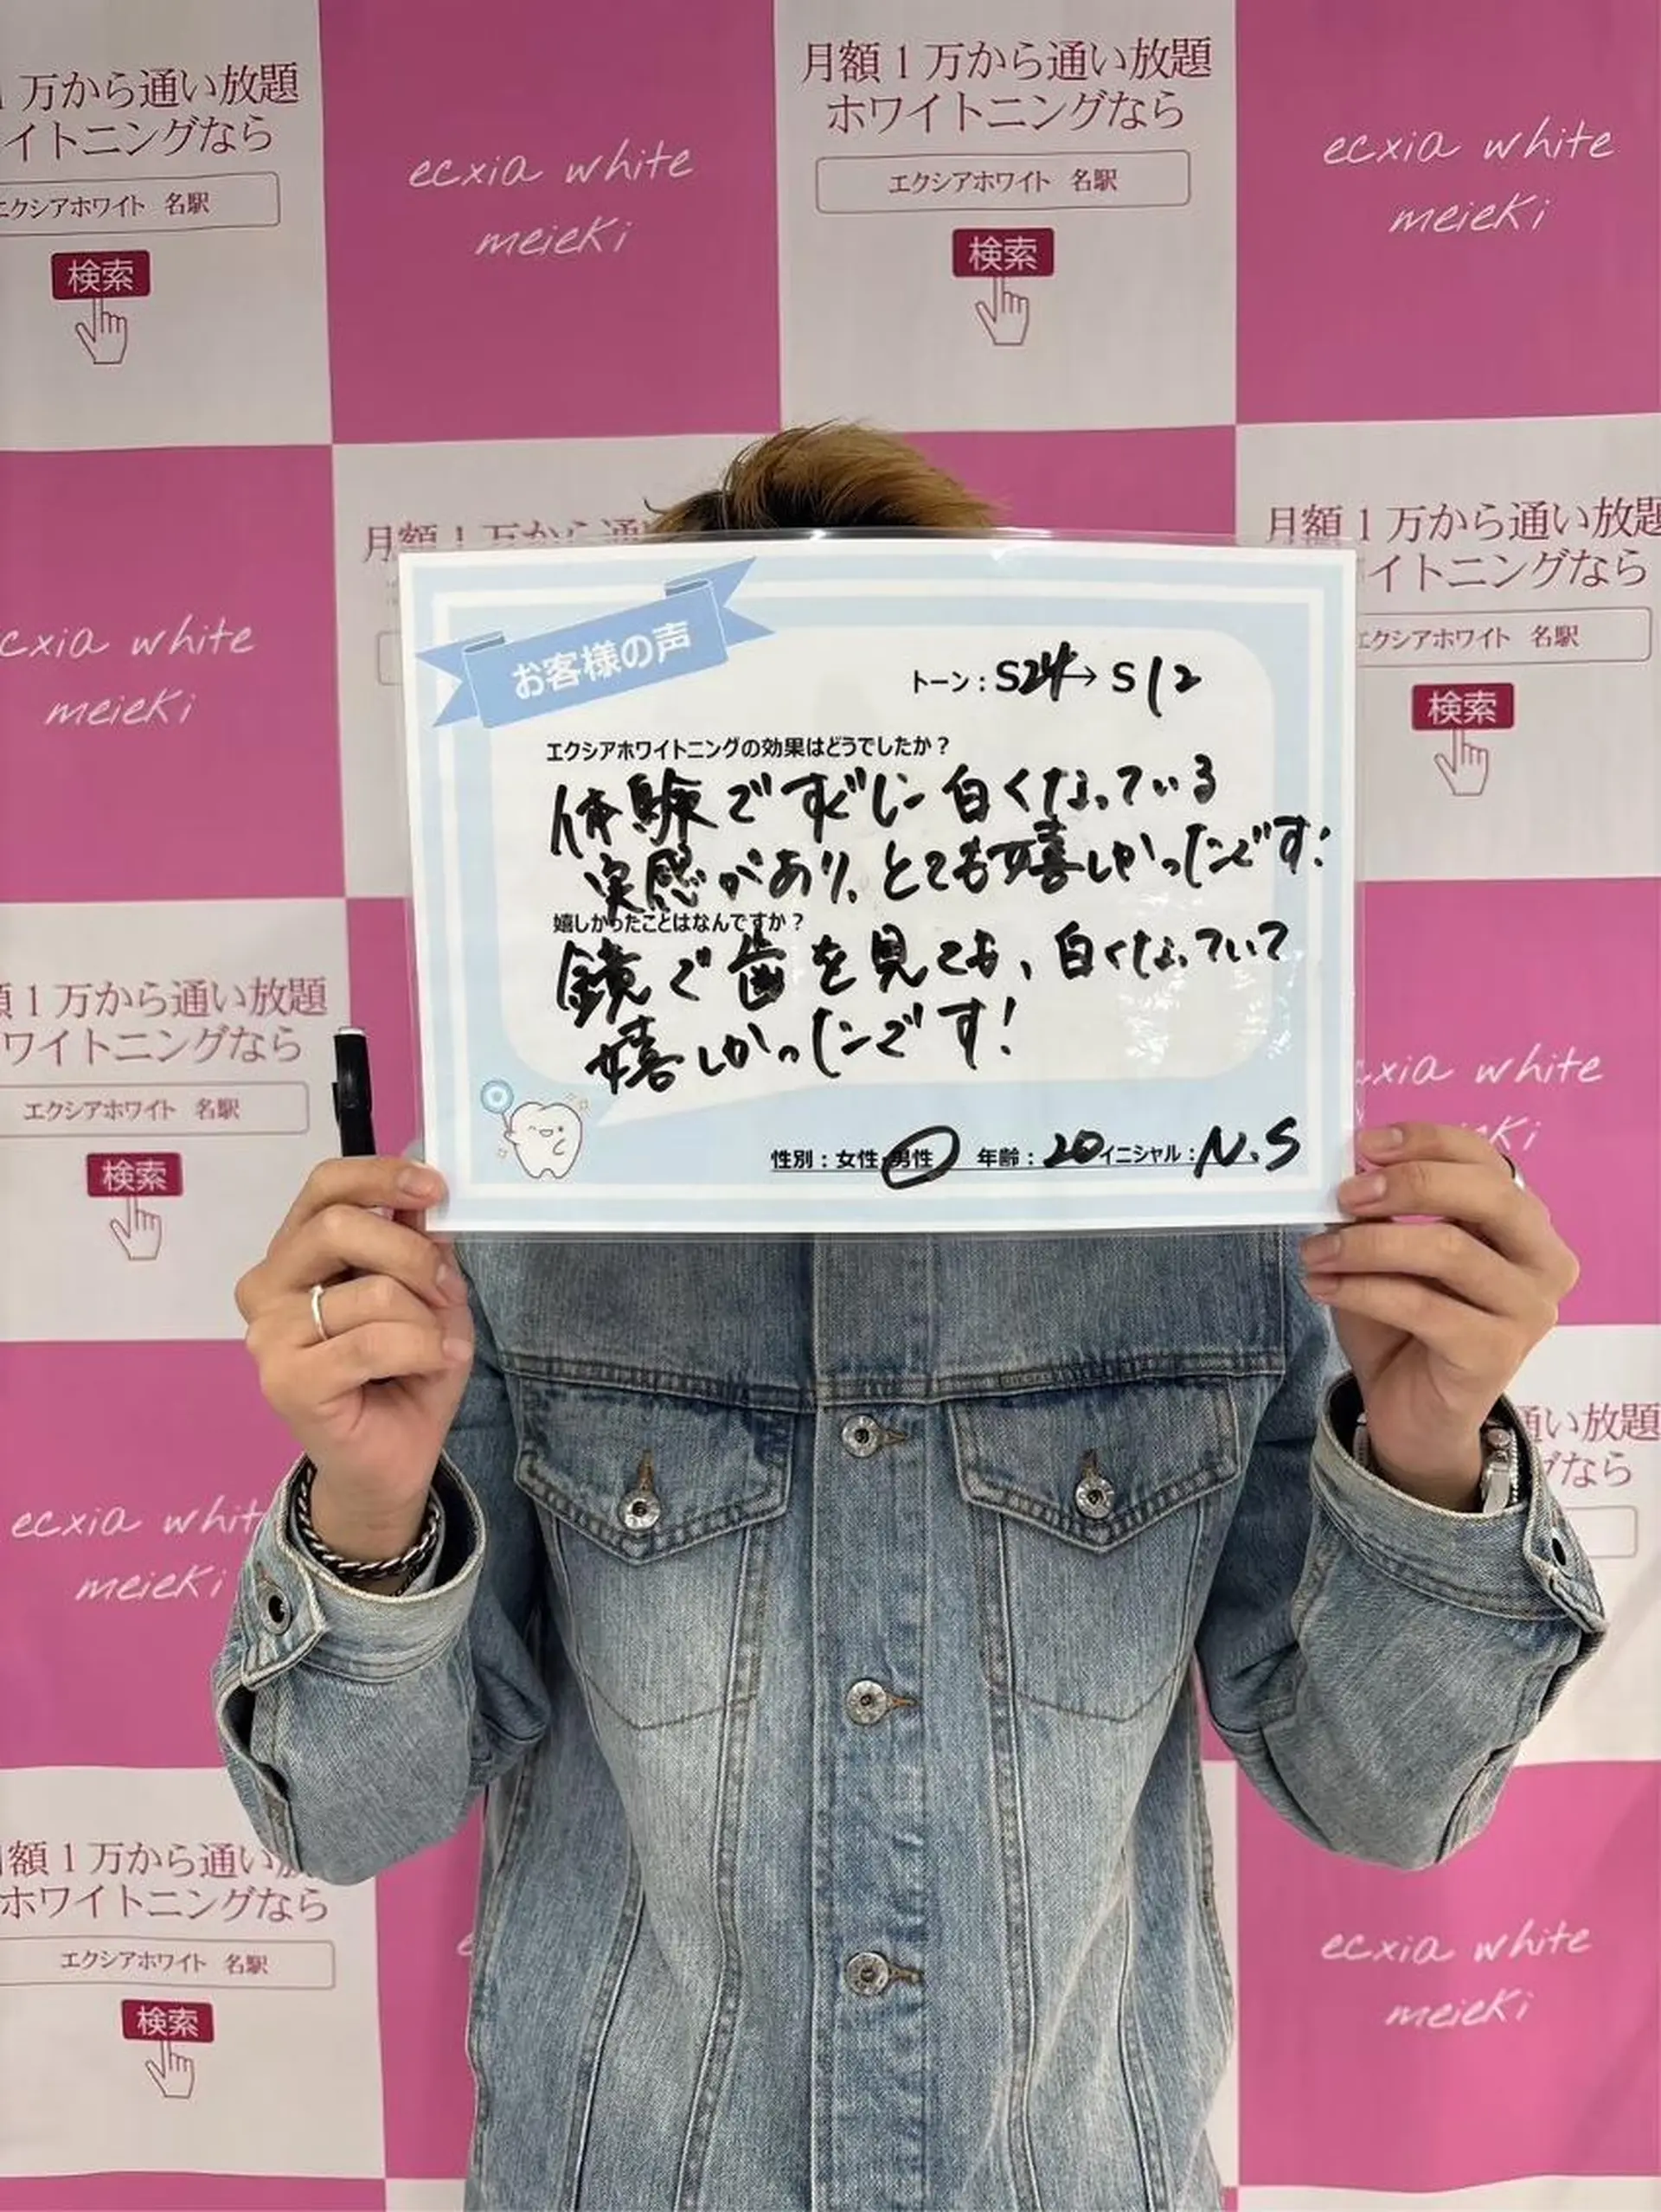 1万から通い放題
イトニングなら
エクシアホワイト 名駅
検索
ecxia white
meieki
月額1万から通い放題
ホワイトニングなら
エクシアホワイト 名駅
検索
ecxia white
meieki
cxia white
meieki
月額1万から通
月額1万から通い放題
イトニングなら
エクシアホワイト 名駅
検索
お客様の声
トーン:S24→S12
エクシアホワイトニングの効果はどうでしたか?
体験ですぐに白くなっている
実感があり、とても嬉しかったです!
嬉しかったことはなんですか?
鏡で歯を見ても、白くなっていて
嬉しかったです!
性別:女性 男性 年齢:20 イニシャル:N.S
額1万から通い放題
ワイトニングなら
エクシアホワイト 名駅
検索
cxia white
eki
ecxia whit
meieki
通い放題
グなら
額1万から通い放
ホワイトニングなら
エクシアホワイト 名駅
検索
e
ecxia white
meieki